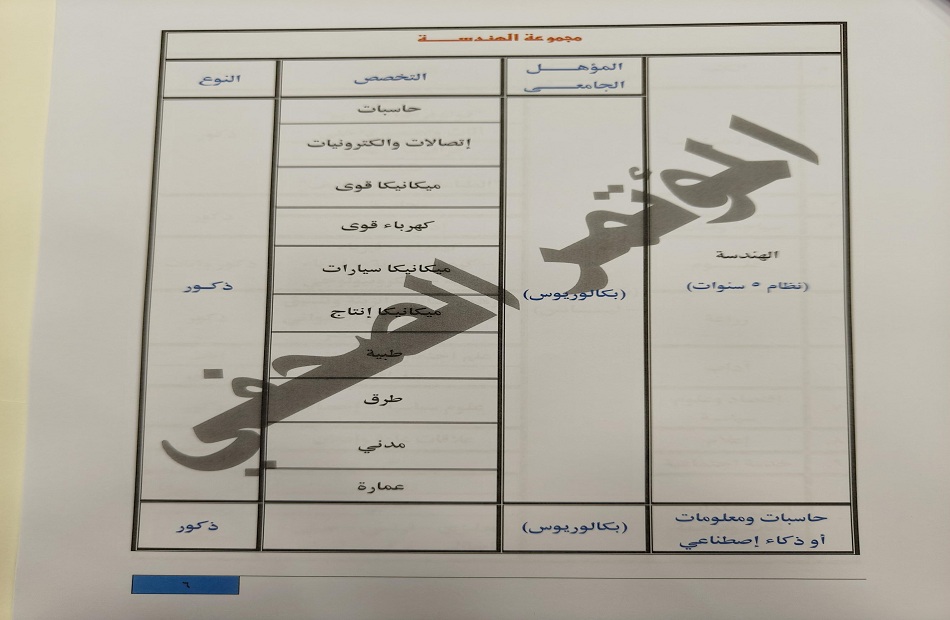 مجموعة الهندســـــة
المؤهـــــل
الجامعـــــي
التخصص
النوع
الهندسة
(نظام ٥ سنوات)
(بكالوريوس)
حاسبات
إتصالات والكترونيات
ميكانيكا قوى
كهرباء قوى
ميكانيكا سيارات
ميكانيكا إنتاج
طبية
طرق
مدني
عمارة
ذكــور
حاسبات ومعلومات
أو ذكاء إصطناعي
(بكالوريوس)
ذكور
المؤتمر الصحفي
٦